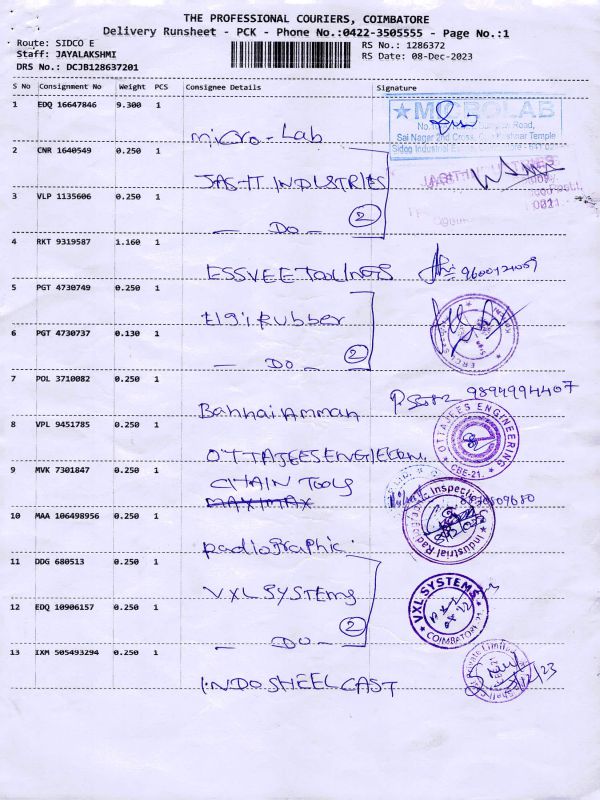 THE PROFESSIONAL COURIERS, COIMBATORE
Delivery Runsheet - PCK - Phone No.:0422-3505555 - Page No.:1
Route: SIDCO E
RS No.: 1286372
Staff: JAYALAKSHMI
RS Date: 08-Dec-2023
DRS No.: DCJB128637201
S No Consignment No Weight PCS Consignee Details Signature
1 EDQ 16647846 9.300 1
MICROLAB
Micro-Lab
2 CNR 1640549 0.250 1
JAS-IT INDUSTRIES
3 VLP 1135606 0.250 1
- DO - 2
4 RKT 9319587 1.160 1
ESSVEE TOOLINGS
5 PGT 4730749 0.250 1
Elgi Rubber
6 PGT 4730737 0.130 1
- DO - 2
7 POL 3710082 0.250 1
Bannari Amman 9894994407
8 VPL 9451785 0.250 1
OTTAJEES ENGINEERING
CBE-21.
OTTAJEES ENGINEERN.
9 MVK 7301847 0.250 1
CHAIN TOOLS
10 MAA 106498956 0.250 1
Industrial Radiographic Inspection
Radiographic
11 DDG 680513 0.250 1
VXL SYSTEMS
VXL SYSTEMS
COIMBATORE-21
12 EDQ 10906157 0.250 1
- DO - 2
13 IXM 505493294 0.250 1
INDO SHEELCAST